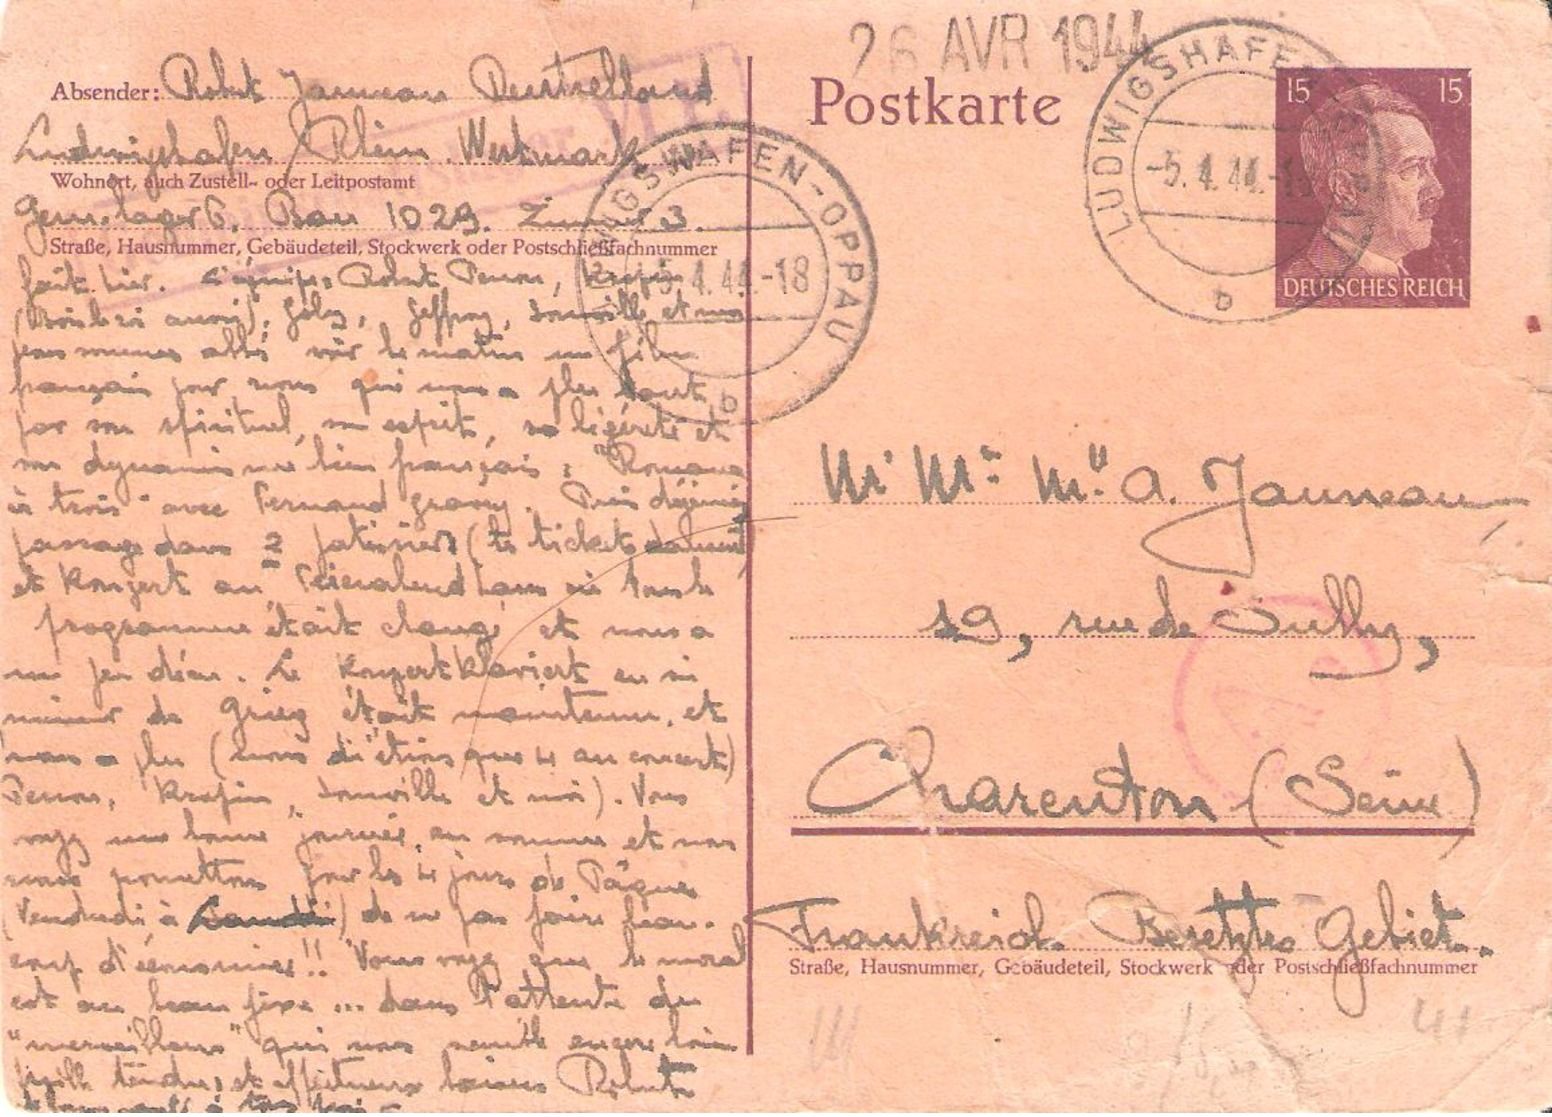 26 AVR 1944
Postkarte
15 15
DEUTSCHES REICH
LUDWIGSHAFEN
-5.4.44.-1
b
LUDWIGSHAFEN-OPPAU
5.4.44.-18
b
Absender: Robert Jauneau Deutschland
Ludwigshafen / Rhein. Westmark
Wohnort, auch Zustell- oder Leitpostamt
Gem. lager 6. Bau 1029. Zimmer 3.
Straße, Hausnummer, Gebäudeteil, Stockwerk oder Postschließfachnummer
fait hier. L'équipe, Robert Perron, Krapin
aussi), Goly, Geffroy, Jouville et moi
sommes allés voir le matin un film
français pour nous qui nous a plu tout
par son spirituel, son esprit, sa légèreté et
son dynamisme bien français : "Romance
à trois" avec Fernand Gravey. Puis déjeuner
passage dans 2 patisseries (les tickets
et Konzert au Feierabendhaus où tout le
programme était changé et nous a
un peu déçu. Le Konzertklavier en si
mineur de Grieg était maintenu, et
nous a plu (nous n'étions que 4 au concert)
Perron, Krapin, Jouville et moi). Vous
voyez une bonne journée, en somme et nous
nous promettons pour les 4 jours de Pâques
(Vendredi à Lundi) de ne pas faire beau-
coup d'économies!! Vous voyez que le moral
est au beau fixe ... dans l'attente du
"merveilleux" qui nous semble encore loin
mille tendres et affectueux baisers Robert
M. Mme Mlle A. Jauneau
19, rue de Sully,
Charenton (Seine)
Frankreich. Besetztes Gebiet.
Straße, Hausnummer, Gebäudeteil, Stockwerk oder Postschließfachnummer